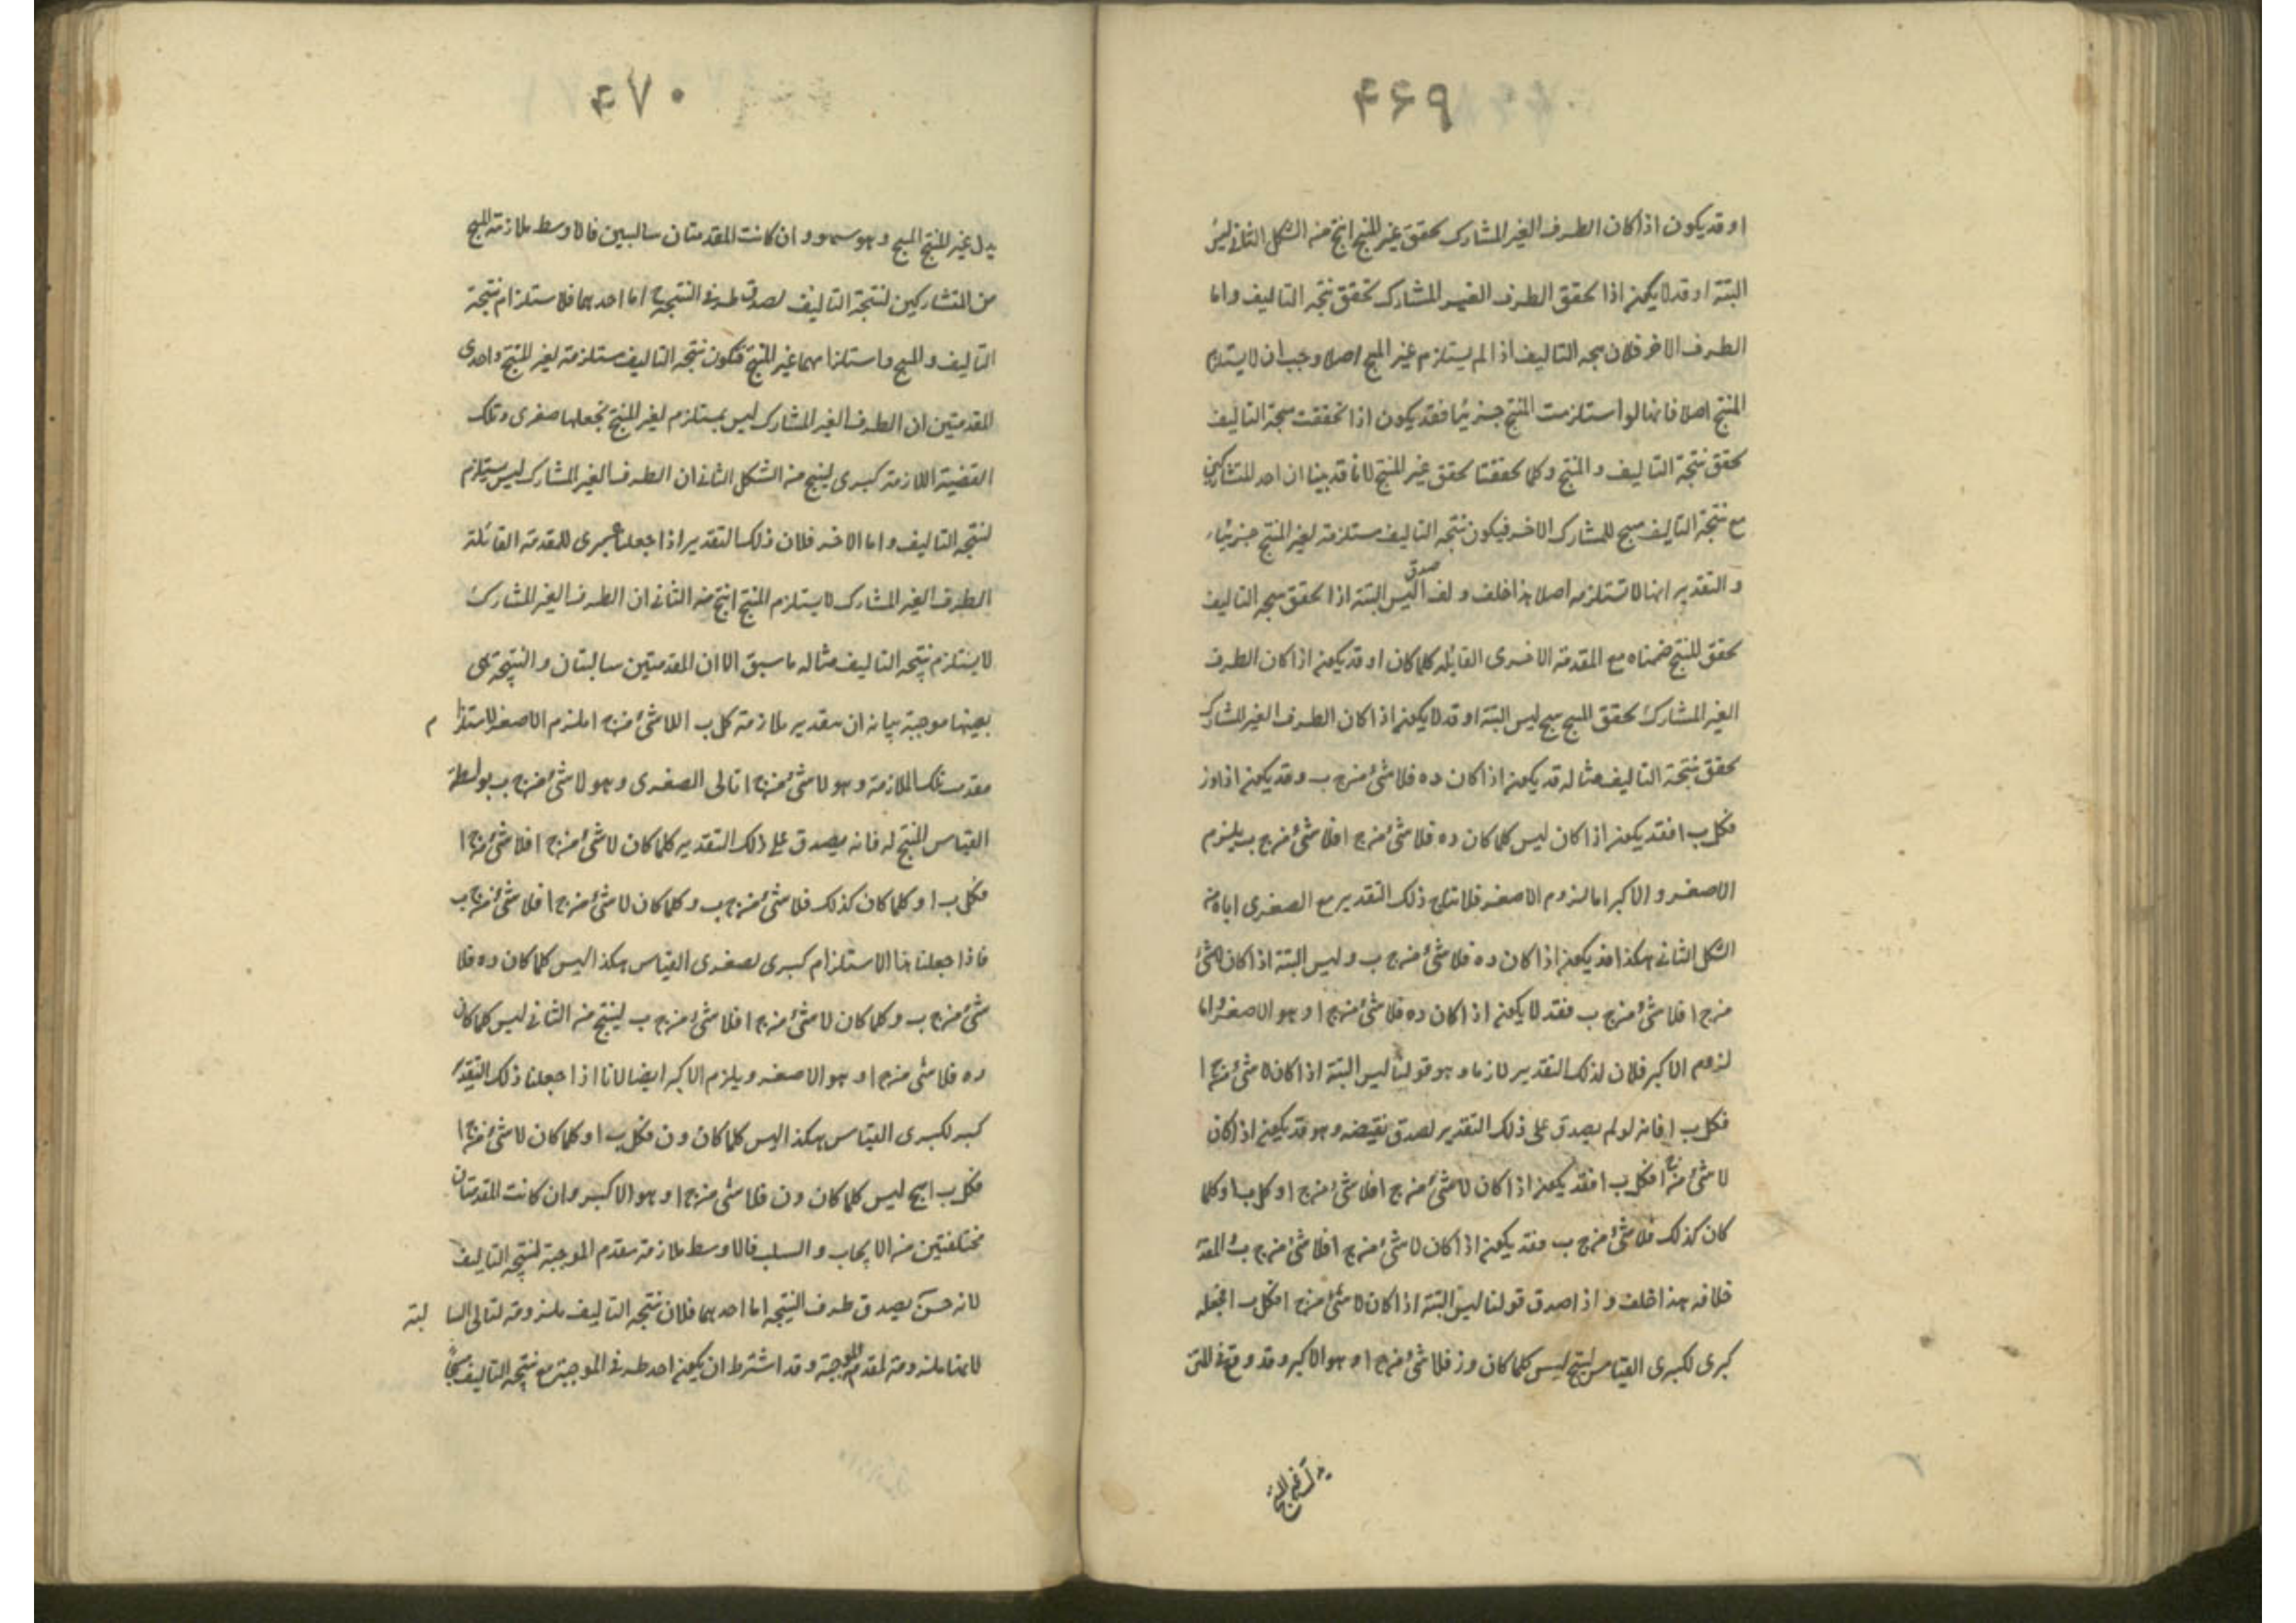 ۴۶۹
او قد يكون اذا كان الطرف الغير المشارك تحقق غير المنتج انتج منه الشكل الثانى ليس
البتة او قد لا يكون اذا تحقق الطرف الغير المشارك تحقق نتيجة التاليف واما
الطرف الاخر فلان نتيجة التاليف اذا لم يستلزم غير المنتج اصلا وجب ان لا يستلزم
المنتج اصلا فانها لو استلزمت المنتج جزئيا فقد يكون اذا تحققت نتيجة التاليف
تحقق نتيجة التاليف و المنتج وكلما تحققتا تحقق غير المنتج لانا قد بينا ان احد المتشاركين
مع نتيجة التاليف منتج للمشارك الاخر فيكون نتيجة التاليف مستلزمة لغير المنتج جزئيا
و التقدير انها لا تستلزمه اصلا هذا خلف و لما صدق ليس البتة اذا تحقق نتيجة التاليف
تحقق المنتج ضممناه مع المقدمة الاخرى القايلة كلما كان او قد يكون اذا كان الطرف
الغير المشارك تحقق المنتج ينتج ليس البتة او قد لا يكون اذا كان الطرف الغير المشارك
تحقق نتيجة التاليف مثاله قد يكون اذا كان ده فلا شئ من ج ب و قد يكون اذا كان وز
فكل ب ا فقد يكون اذا كان ليس كلما كان ده فلا شئ من ج ا فلا شئ من ج ب يلزم
الاصغر و الاكبر اما لزوم الاصغر فلانتاج ذلك التقدير مع الصغرى اياه من
الشكل الثانى هكذا قد يكون اذا كان ده فلا شئ من ج ب و ليس البتة اذا كان لا شئ
من ج ا فلا شئ من ج ب فقد لا يكون اذا كان ده فلا شئ من ج ا و هو الاصغر و اما
لزوم الاكبر فلان لذلك التقدير لازما و هو قولنا ليس البتة اذا كان لا شئ من ج ا
فكل ب ا فانه لو لم يصدق على ذلك التقدير لصدق نقيضه و هو قد يكون اذا كان
لا شئ من ج ا فكل ب ا فقد يكون اذا كان لا شئ من ج ا فلا شئ من ج ا و كل ب ا و كلما
كان كذلك فلا شئ من ج ب فقد يكون اذا كان لا شئ من ج ا فلا شئ من ج ب و المقدر
خلافه هذا خلف و اذا صدق قولنا ليس البتة اذا كان لا شئ من ج ا فكل ب ا نجعله
كبرى لكبرى القياس لينتج ليس كلما كان وز فلا شئ من ج ا و هو الاكبر و قد وقع فى المتن
۴۷۰
بدل غير المنتج المنتج و هو سهو و ان كانت المقدمتان سالبتين فالاوسط ملازمة المنتج
من المتشاركين لنتيجة التاليف لصدق طرفى النتيجة اما احدهما فلاستلزام نتيجة
التاليف و المنتج و استلزامهما غير المنتج فتكون نتيجة التاليف مستلزمة لغير المنتج واحدى
المقدمتين ان الطرف الغير المشارك ليس بمستلزم لغير المنتج نجعلها صغرى و تلك
القضية اللازمة كبرى لينتج من الشكل الثانى ان الطرف الغير المشارك ليس يستلزم
لنتيجة التاليف و اما الاخر فلان ذلك التقدير اذا جعلناه كبرى للمقدمة القائلة
الطرف الغير المشارك لا يستلزم المنتج انتج من الثانى ان الطرف الغير المشارك
لا يستلزم نتيجة التاليف مثاله ما سبق الا ان المقدمتين سالبتان و النتيجة هى
بعينها موجبة بيانه ان بتقدير ملازمة كل ب ا للا شئ من ج ا يلزم الاصغر لاستلزام
مقدمة تلك الملازمة و هو لا شئ من ج ا تالى الصغرى و هو لا شئ من ج ب بواسطة
القياس المنتج له فانه يصدق على ذلك التقدير كلما كان لا شئ من ج ا فلا شئ من ج ا
فكل ب ا و كلما كان كذلك فلا شئ من ج ب و كلما كان لا شئ من ج ا فلا شئ من ج ب
فاذا جعلنا هذا الاستلزام كبرى لصغرى القياس هكذا ليس كلما كان ده فلا
شئ من ج ب و كلما كان لا شئ من ج ا فلا شئ من ج ب لينتج من الثانى ليس كلما كان
ده فلا شئ من ج ا و هو الاصغر و يلزم الاكبر ايضا لانا اذا جعلنا ذلك التقدير
كبر لكبرى القياس هكذا ليس كلما كان وز فكل ب ا و كلما كان لا شئ من ج ا
فكل ب ا ينتج ليس كلما كان وز فلا شئ من ج ا و هو الاكبر و ان كانت المقدمتان
مختلفتين من الايجاب و السلب فالاوسط ملازمة مقدم الموجبة لنتيجة التاليف
لانه حـ يصدق طرف النتيجة اما احدهما فلان نتيجة التاليف ملزومة لتالى السالبة
لانها ملزومة لمقدم الموجبة و قد اشترط ان يكون احد طرفى الموجبة مع نتيجة التاليف منتجا